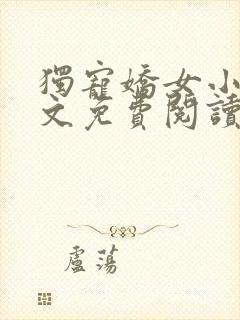 獨寵嬌女小
文免費閱讀
盧蕩